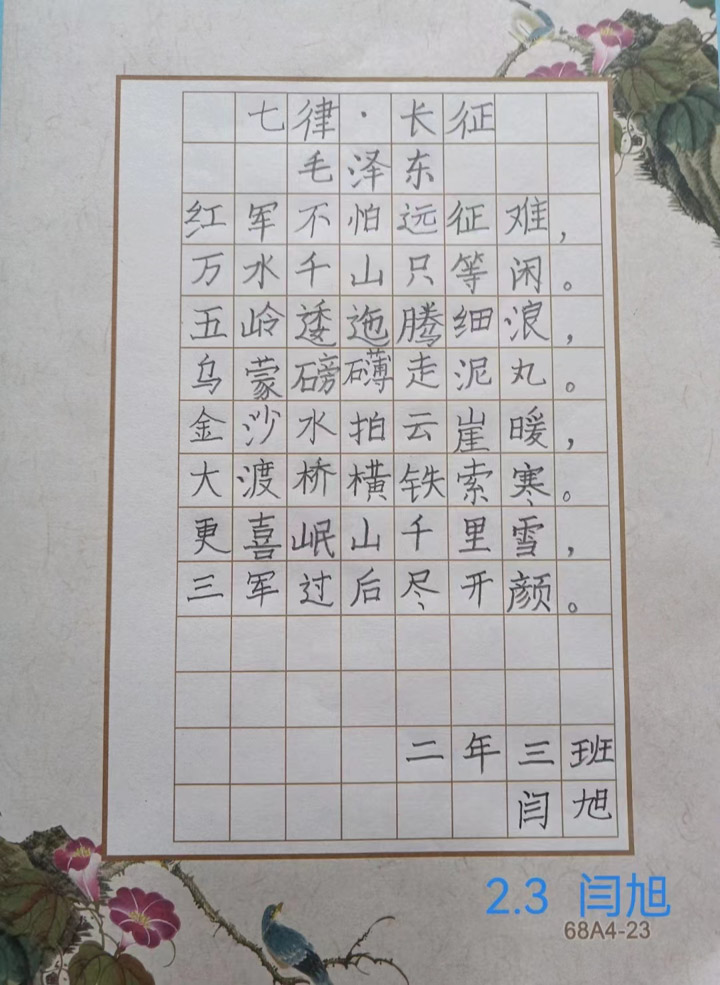 七律·长征
毛泽东
红军不怕远征难，
万水千山只等闲。
五岭逶迤腾细浪，
乌蒙磅礴走泥丸。
金沙水拍云崖暖，
大渡桥横铁索寒。
更喜岷山千里雪，
三军过后尽开颜。
二年三班
闫旭
2.3 闫旭
68A4-23